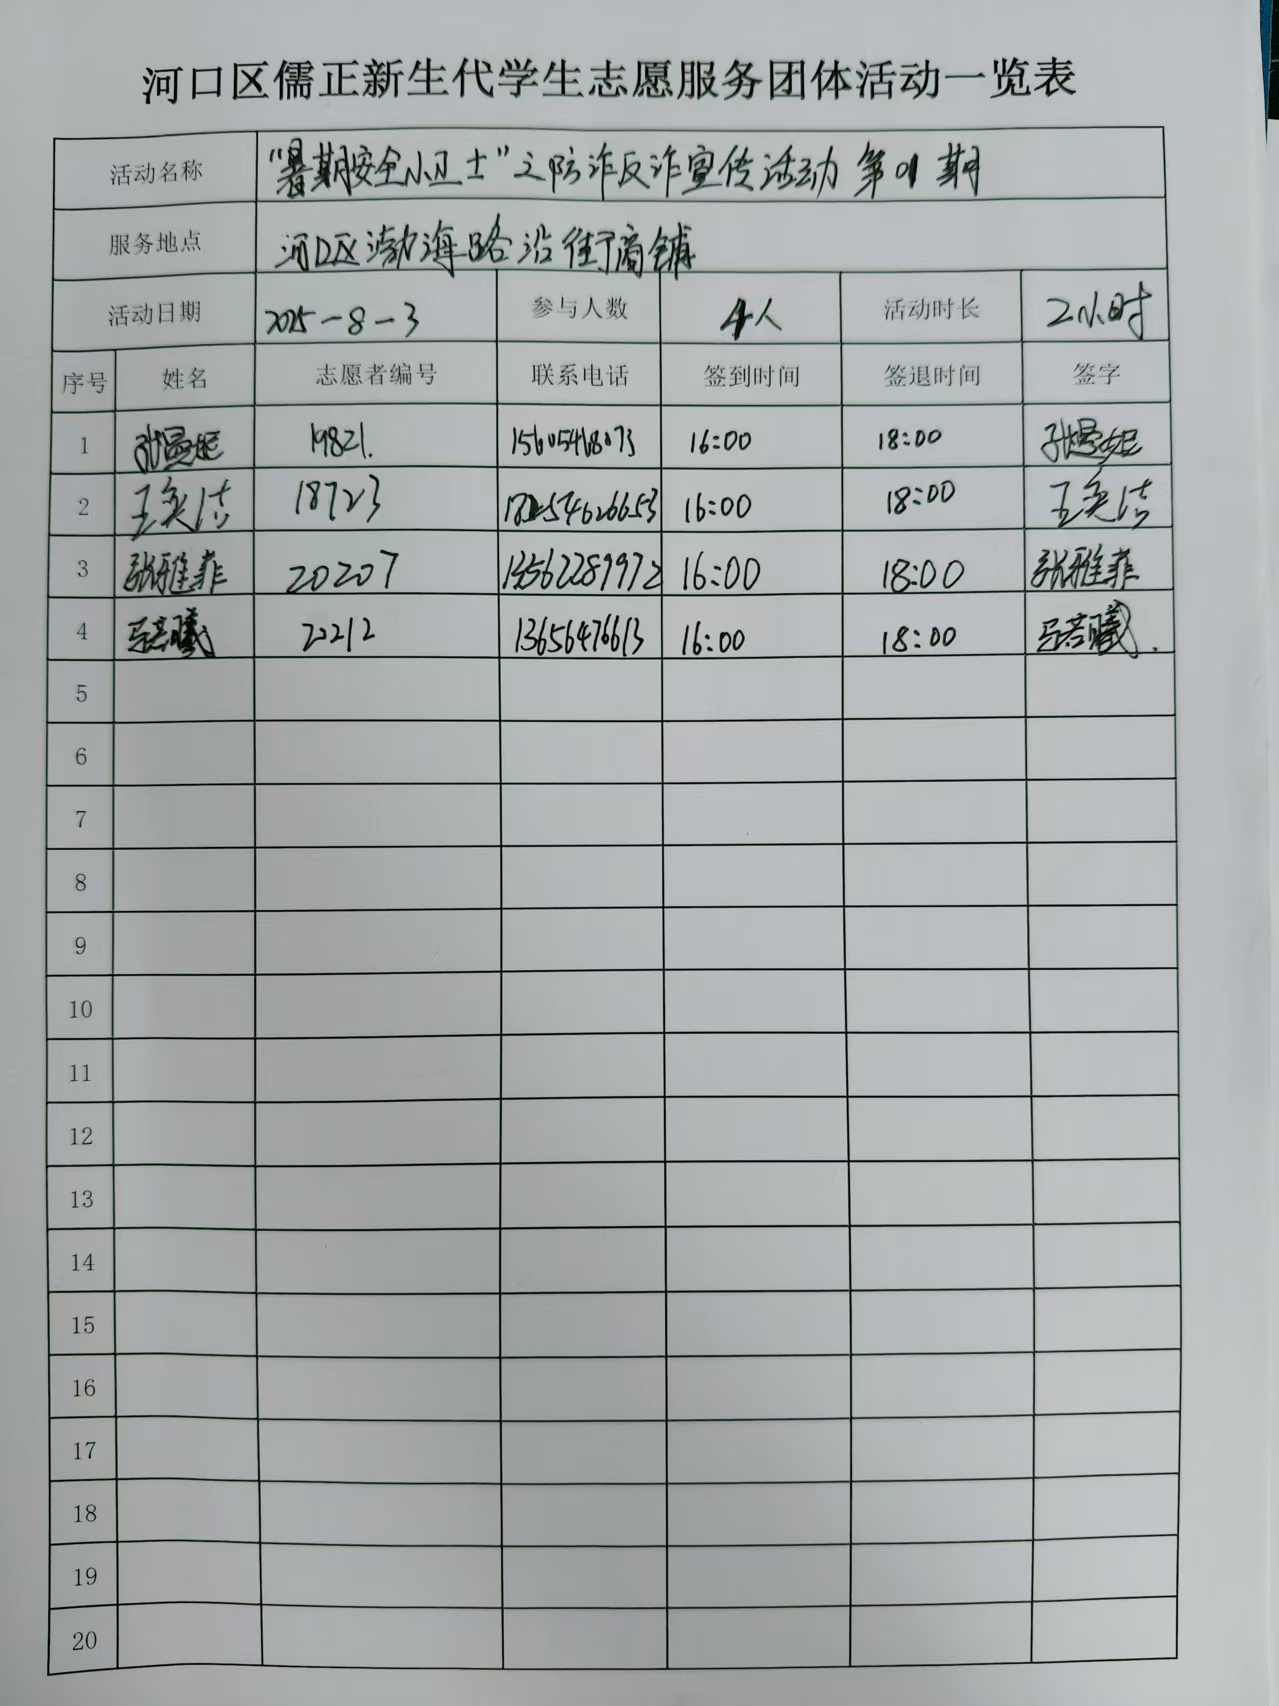 河口区儒正新生代学生志愿服务团体活动一览表
活动名称 "暑期安全小卫士"之防诈反诈宣传活动 第01期
服务地点 河口区渤海路沿街商铺
活动日期 2025-8-3 参与人数 4人 活动时长 2小时
序号 姓名 志愿者编号 联系电话 签到时间 签退时间 签字
1 19821. 15605468073 16:00 18:00
2 王奕洁 18723 16:00 18:00 王奕洁
3 张雅菲 20207 13562289972 16:00 18:00 张雅菲
4 马若曦 20212 13656476613 16:00 18:00 马若曦.
5
6
7
8
9
10
11
12
13
14
15
16
17
18
19
20